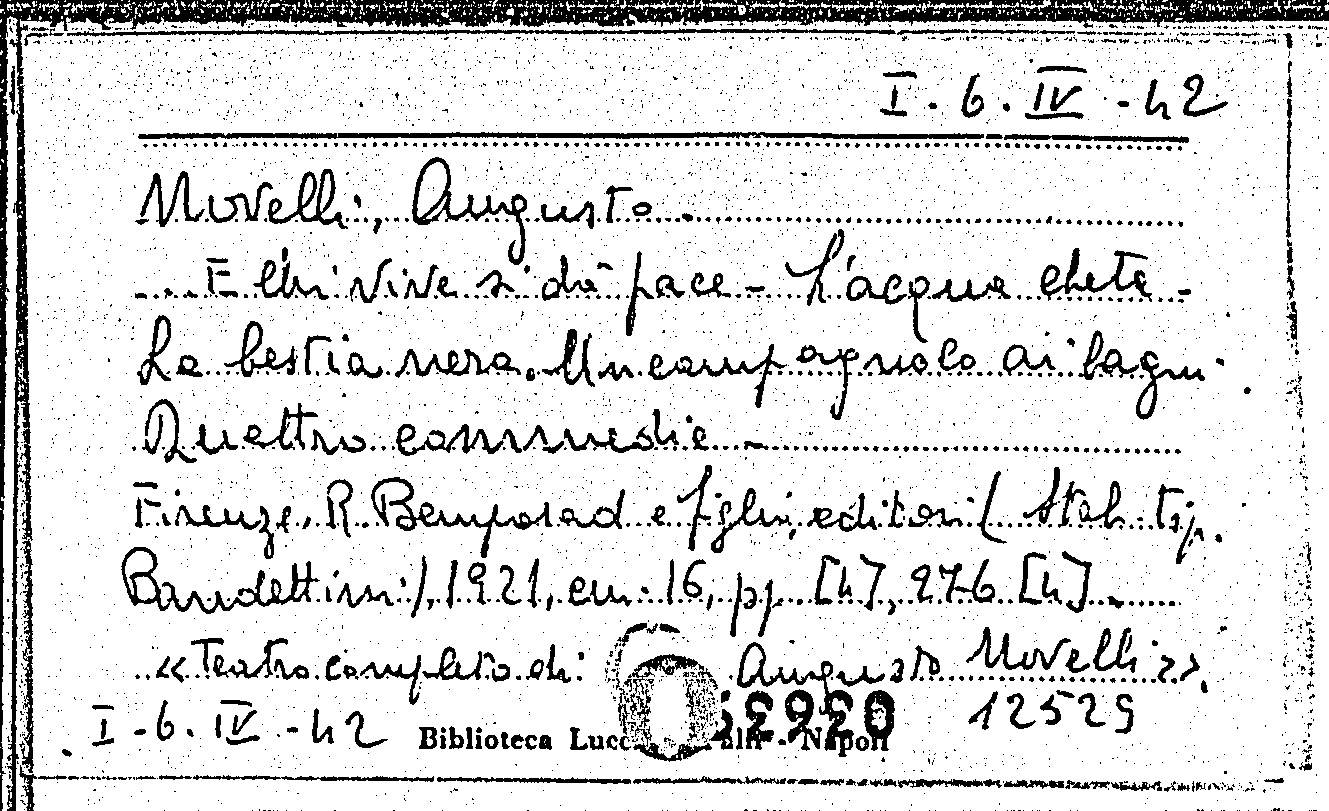 I. 6. IV - 42
Novelli, Augusto.
... E chi vive si dà pace - L'acqua cheta -
La bestia nera. Un campagnolo ai bagni.
Quattro commedie -
Firenze, R. Bemporad e figli, editori (Stab. Tip.
Bandettini), 1921, cm. 16, pp. [4], 276 [4].
« Teatro completo di Augusto Novelli ».
I - 6. IV - 42 Biblioteca Napoli 12529